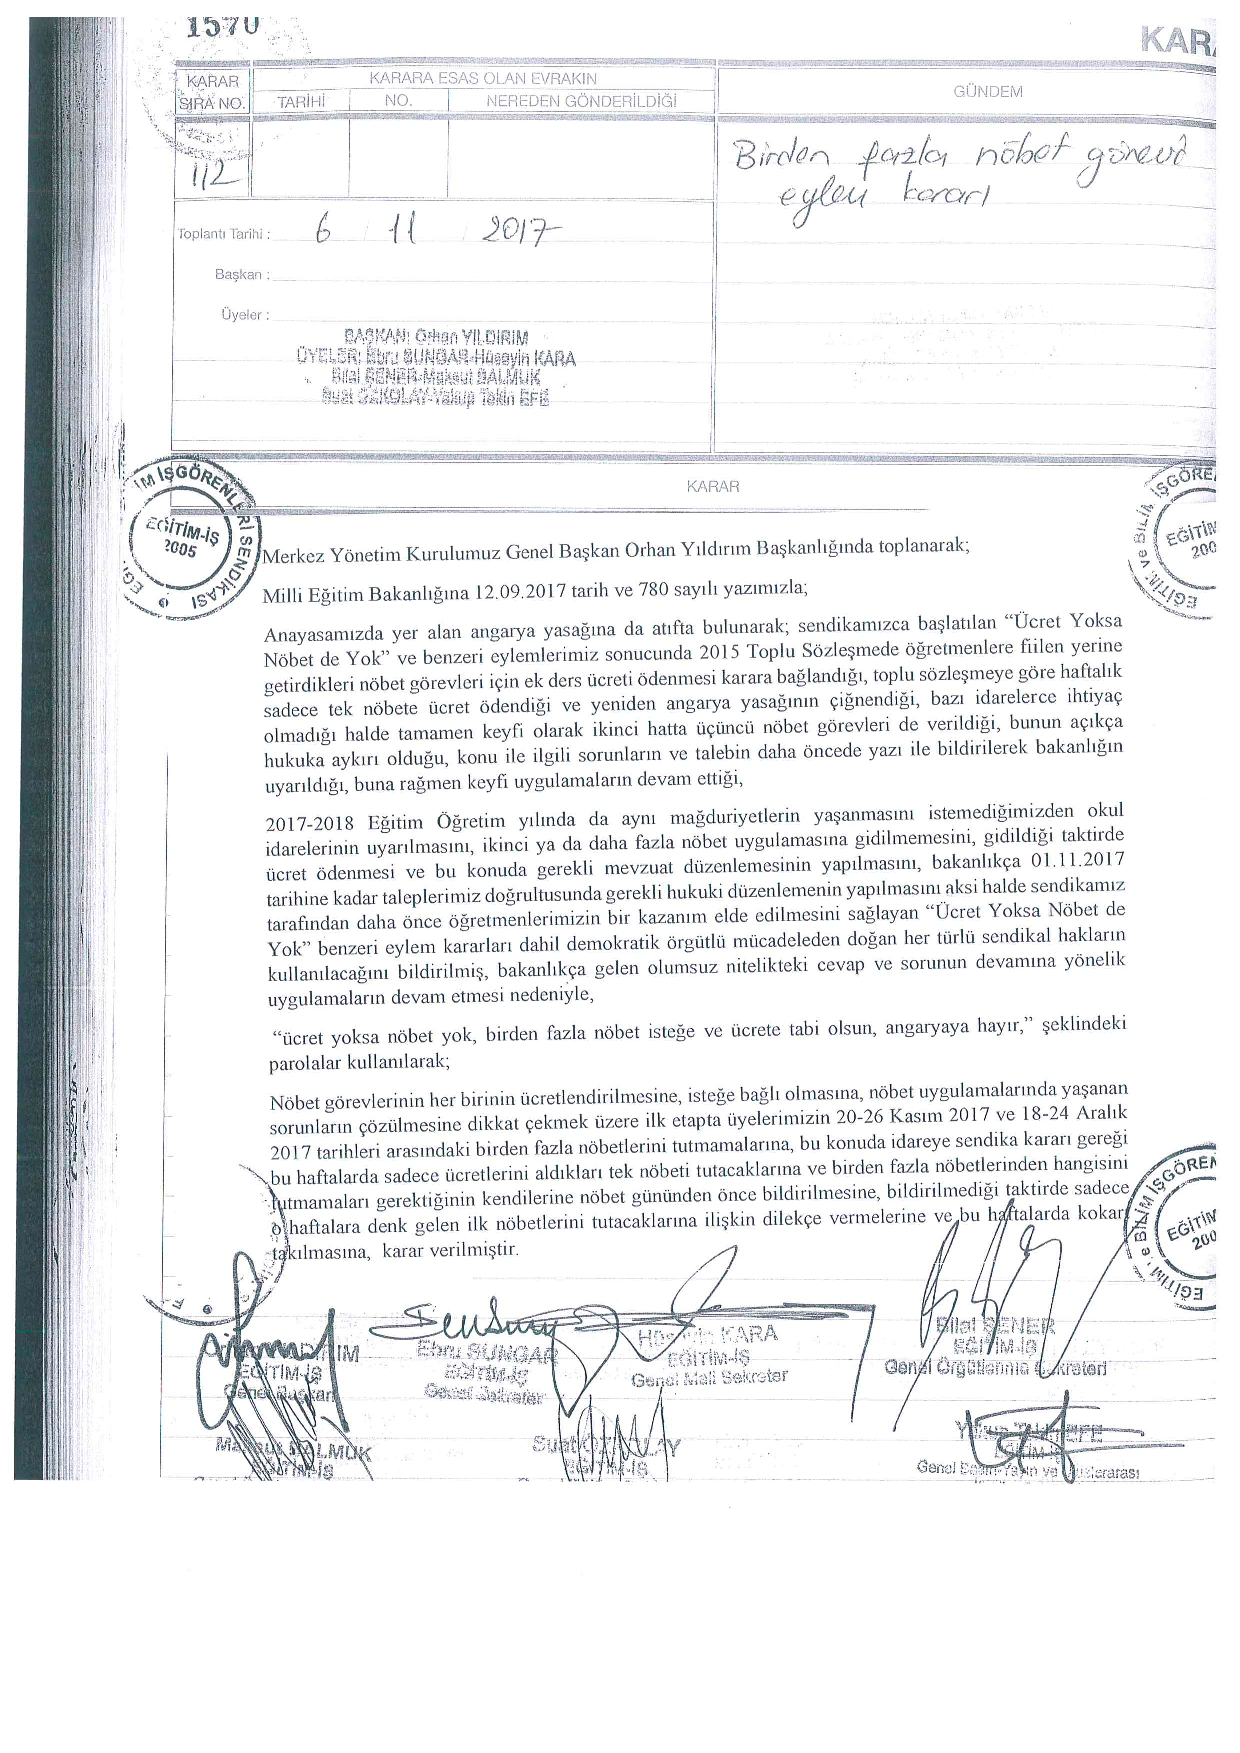 1570
KARA
KARAR
SIRA NO.
KARARA ESAS OLAN EVRAKIN
TARİHİ
NO.
NEREDEN GÖNDERİLDİĞİ
GÜNDEM
112
Birden fazla nöbet görevi
eylem kararı
Toplantı Tarihi : 6 / 11 / 2017
Başkan :
Üyeler :
BAŞKAN: Orhan YILDIRIM
ÜYELER: Ebru SUNGAR-Hüseyin KARA
Bilal ŞENER-Maksut BALMUK
Suat ÖZKOLAY-Yakup Tekin EFE
KARAR
EĞİTİM-İŞ
2005
Merkez Yönetim Kurulumuz Genel Başkan Orhan Yıldırım Başkanlığında toplanarak;
Milli Eğitim Bakanlığına 12.09.2017 tarih ve 780 sayılı yazımızla;
Anayasamızda yer alan angarya yasağına da atıfta bulunarak; sendikamızca başlatılan “Ücret Yoksa
Nöbet de Yok” ve benzeri eylemlerimiz sonucunda 2015 Toplu Sözleşmede öğretmenlere fiilen yerine
getirdikleri nöbet görevleri için ek ders ücreti ödenmesi karara bağlandığı, toplu sözleşmeye göre haftalık
sadece tek nöbete ücret ödendiği ve yeniden angarya yasağının çiğnendiği, bazı idarelerce ihtiyaç
olmadığı halde tamamen keyfi olarak ikinci hatta üçüncü nöbet görevleri de verildiği, bunun açıkça
hukuka aykırı olduğu, konu ile ilgili sorunların ve talebin daha öncede yazı ile bildirilerek bakanlığın
uyarıldığı, buna rağmen keyfi uygulamaların devam ettiği,
2017-2018 Eğitim Öğretim yılında da aynı mağduriyetlerin yaşanmasını istemediğimizden okul
idarelerinin uyarılmasını, ikinci ya da daha fazla nöbet uygulamasına gidilmemesini, gidildiği taktirde
ücret ödenmesi ve bu konuda gerekli mevzuat düzenlemesinin yapılmasını, bakanlıkça 01.11.2017
tarihine kadar taleplerimiz doğrultusunda gerekli hukuki düzenlemenin yapılmasını aksi halde sendikamız
tarafından daha önce öğretmenlerimizin bir kazanım elde edilmesini sağlayan “Ücret Yoksa Nöbet de
Yok” benzeri eylem kararları dahil demokratik örgütlü mücadeleden doğan her türlü sendikal hakların
kullanılacağını bildirilmiş, bakanlıkça gelen olumsuz nitelikteki cevap ve sorunun devamına yönelik
uygulamaların devam etmesi nedeniyle,
“ücret yoksa nöbet yok, birden fazla nöbet isteğe ve ücrete tabi olsun, angaryaya hayır,” şeklindeki
parolalar kullanılarak;
Nöbet görevlerinin her birinin ücretlendirilmesine, isteğe bağlı olmasına, nöbet uygulamalarında yaşanan
sorunların çözülmesine dikkat çekmek üzere ilk etapta üyelerimizin 20-26 Kasım 2017 ve 18-24 Aralık
2017 tarihleri arasındaki birden fazla nöbetlerini tutmamalarına, bu konuda idareye sendika kararı gereği
bu haftalarda sadece ücretlerini aldıkları tek nöbeti tutacaklarına ve birden fazla nöbetlerinden hangisini
tutmamaları gerektiğinin kendilerine nöbet gününden önce bildirilmesine, bildirilmediği taktirde sadece
o haftalara denk gelen ilk nöbetlerini tutacaklarına ilişkin dilekçe vermelerine ve bu haftalarda kokart
takılmasına, karar verilmiştir.
EĞİTİM-İŞ
Genel Başkan
Ebru SUNGAR
EĞİTİM-İŞ
Genel Sekreter
Hüseyin KARA
EĞİTİM-İŞ
Genel Mali Sekreter
Bilal ŞENER
EĞİTİM-İŞ
Genel Örgütlenme Sekreteri
EĞİTİM-İŞ
Suat
EĞİTİM-İŞ
EFE
EĞİTİM-İŞ
Genel Basın Yayın ve Uluslararası